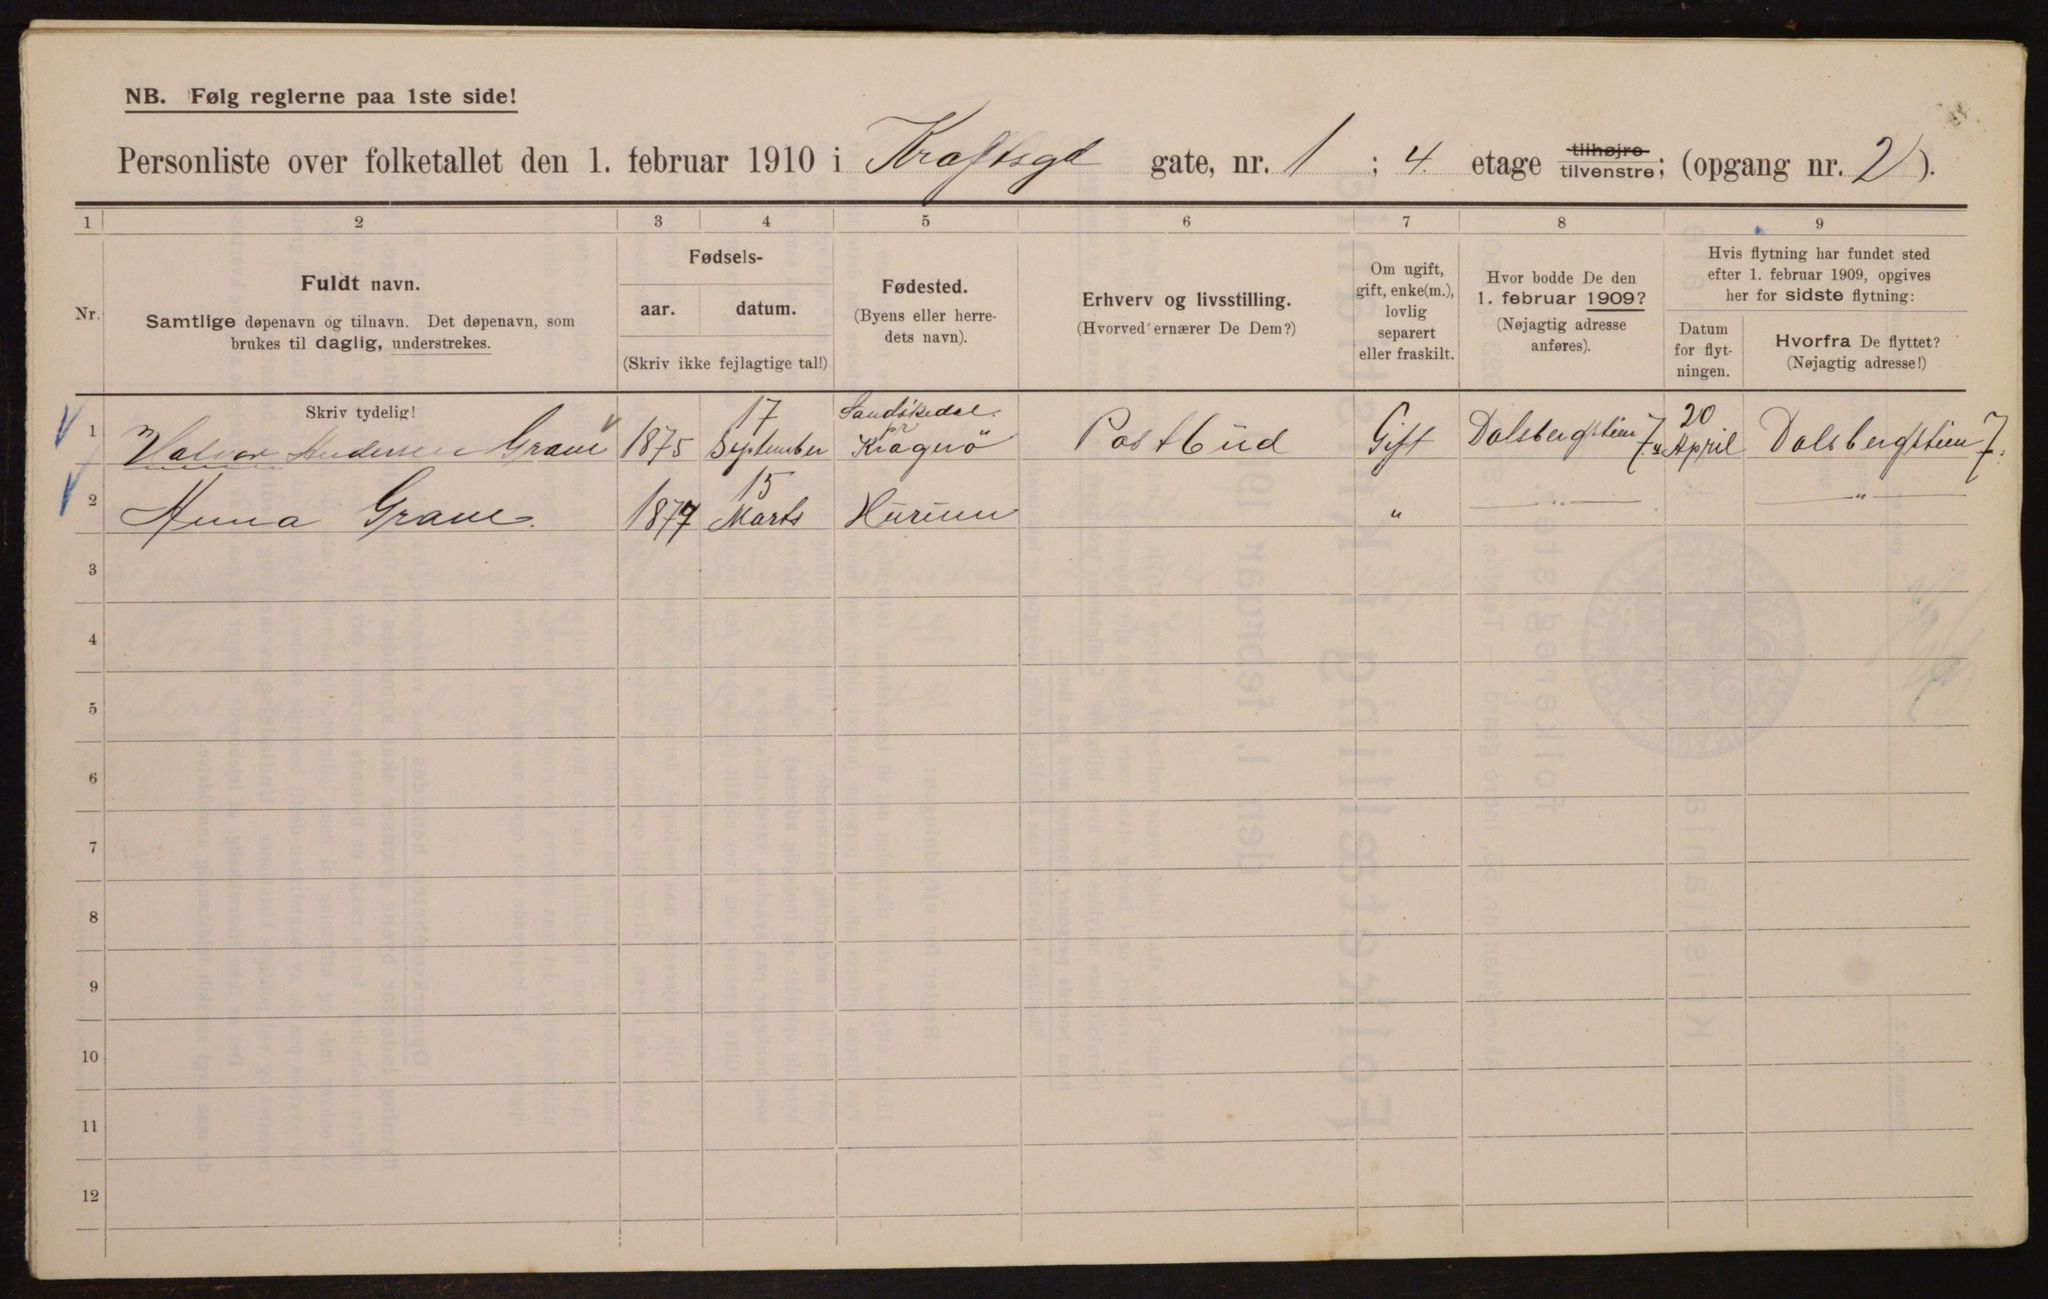 NB. Følg reglerne paa 1ste side!
Personliste over folketallet den 1. februar 1910 i Kraftsgt gate, nr. 1 ; 4. etage tilhøjre tilvenstre; (opgang nr. 2).
1 2 3 4 5 6 7 8 9
Nr.
Fuldt navn.
Samtlige døpenavn og tilnavn. Det døpenavn, som
brukes til daglig, understrekes.
Fødsels-
aar. datum.
(Skriv ikke fejlagtige tal!)
Fødested.
(Byens eller herre-
dets navn).
Erhverv og livsstilling.
(Hvorved ernærer De Dem?)
Om ugift,
gift, enke(m.),
lovlig
separert
eller fraskilt.
Hvor bodde De den
1. februar 1909?
(Nøjagtig adresse
anføres).
Hvis flytning har fundet sted
efter 1. februar 1909, opgives
her for sidste flytning:
Datum
for flyt-
ningen.
Hvorfra De flyttet?
(Nøjagtig adresse!)
Skriv tydelig!
1 Halvor Andersen Grave 1875 17 September Sandökedal pr Kragerö Postbud Gift Dalsbergstien 7 20 April Dalsbergstien 7.
2 Anna Grave. 1877 15 Marts Hurum " " "
3
4
5
6
7
8
9
10
11
12